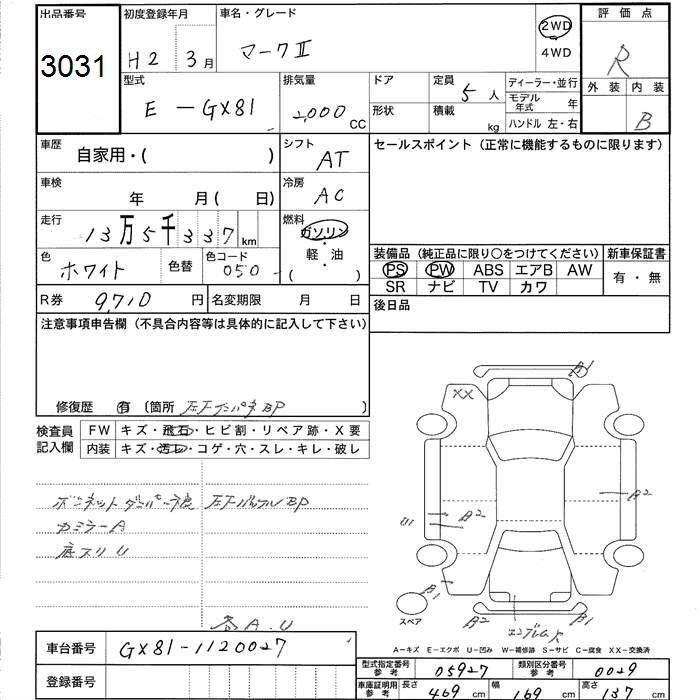 出品番号 初度登録年月 車名・グレード 2WD 評価点
3031 H2 3月 マークⅡ 4WD R
型式 排気量 ドア 定員 5人 ディーラー・並行 外装 内装
E-GX81 2,000 CC 形状 積載 kg モデル年式 年 B
ハンドル 左・右
車歴 自家用・( ) シフト AT セールスポイント(正常に機能するものに限ります)
車検 年 月( 日) 冷房 AC
走行 13万5千337km 燃料 ガソリン・軽油・( )
色 ホワイト 色替 色コード 050 装備品(純正品に限り○をつけてください) 新車保証書
PS PW ABS エアB AW 有・無
SR ナビ TV カワ
R券 9,710円 名変期限 月 日 後日品
注意事項申告欄(不具合内容等は具体的に記入して下さい)
修復歴 有 〔箇所 BP 〕
検査員記入欄 FW キズ・飛石・ヒビ割・リペア跡・X要
内装 キズ・汚レ・コゲ・穴・スレ・キレ・破レ
ボンネットダンパー BP
カミラーA
底スリU
各A.U
XX
B1
A2
B2
U1
A2
B1
B1
B1
エンブレム欠
スペア
A-キズ E-エクボ U-凹み W-補修跡 S-サビ C-腐食 XX-交換済
車台番号 GX81-1120027
登録番号
型式指定番号 参考 05927 類別区分番号 参考 0029
車庫証明用 参考 長さ 469 cm 幅 169 cm 高さ 137 cm